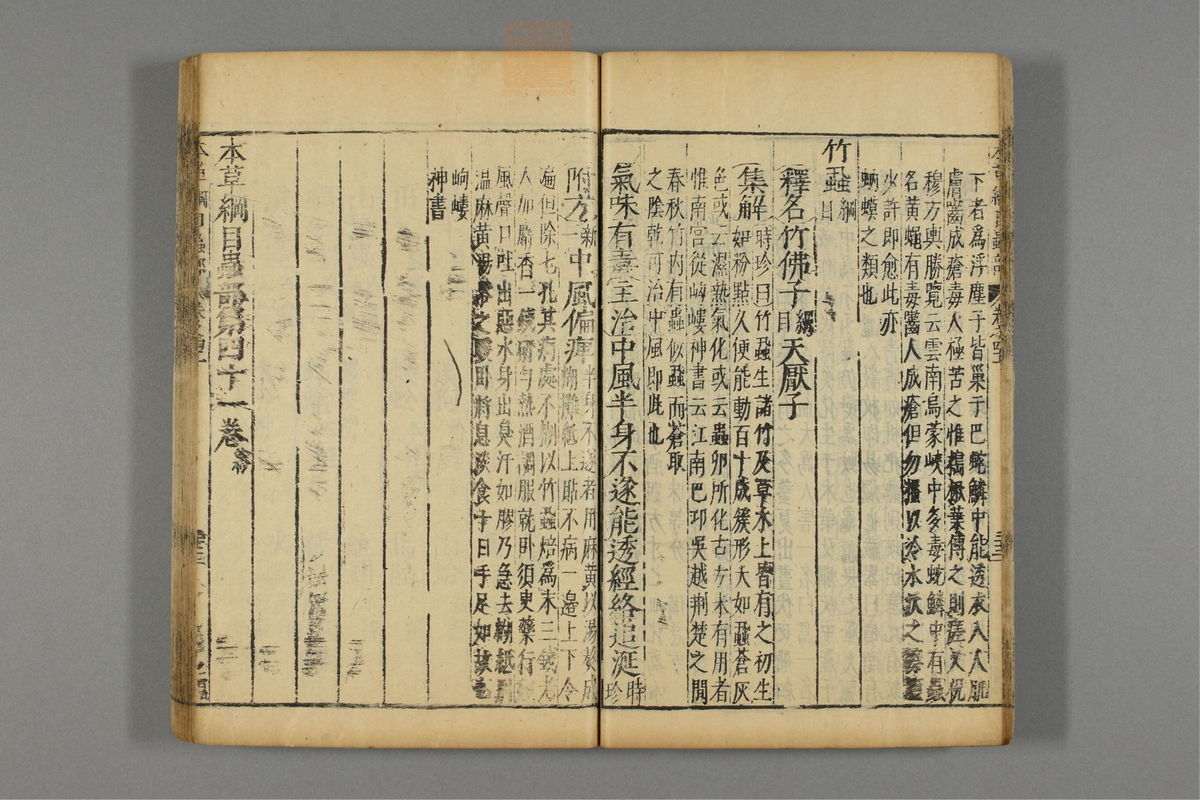 下者爲浮塵子皆巢于巴蛇鱗中能透衣入人肌
膚嚙成瘡毒人極苦之惟搗楸葉傅之則瘥又祝
穆方輿勝覽云雲南烏蒙峽中多毒蛇鱗中有蟲
名黃蠅有毒嚙人成瘡但勿搔以冷水沃之
少許即愈此亦
蚋蟆之類也
竹蝨綱目
釋名竹佛子綱目天厭子
集解時珍曰竹蝨生諸竹及草木上皆有之初生
如粉點久便能動百十成簇形大如蝨蒼灰
色或云濕熱氣化或云蟲卵所化古方未有用者
惟南宮從岣嶁神書云江南巴邛吳越荆楚之閒
春秋竹內有蟲似蝨而蒼取
之陰乾可治中風即此也
氣味有毒主治中風半身不遂能透經絡追涎時珍
附方新一中風偏痺半身不遂者用麻黃以湯熬成
糊攤紙上貼不病一邊上下令
遍但除七孔其病處不糊以竹蝨焙爲末三錢尤
人加麝香一錢研勻熱酒調服就卧須臾藥行
風聲口吐出惡水身出臭汗如膠乃急去糊紙
溫麻黃湯浴之將息淡食十日手足如故
岣嶁
神書
本草綱目蟲部第四十一卷終